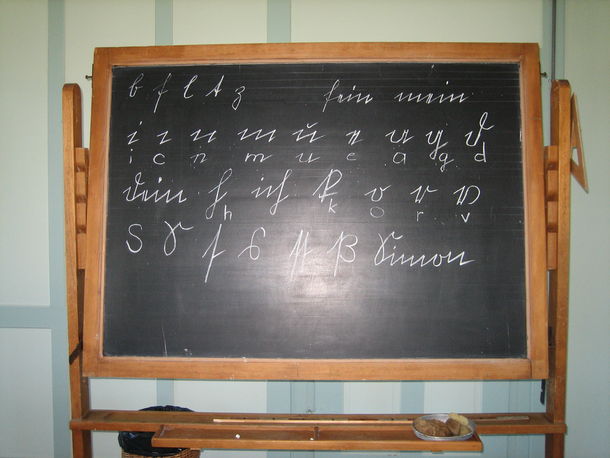 b f l t z fein mein
i c n m u e a g d
i c n m u e a g d
dein h ich k o r v
h k o r v
S S ſ s ſt ß Simon